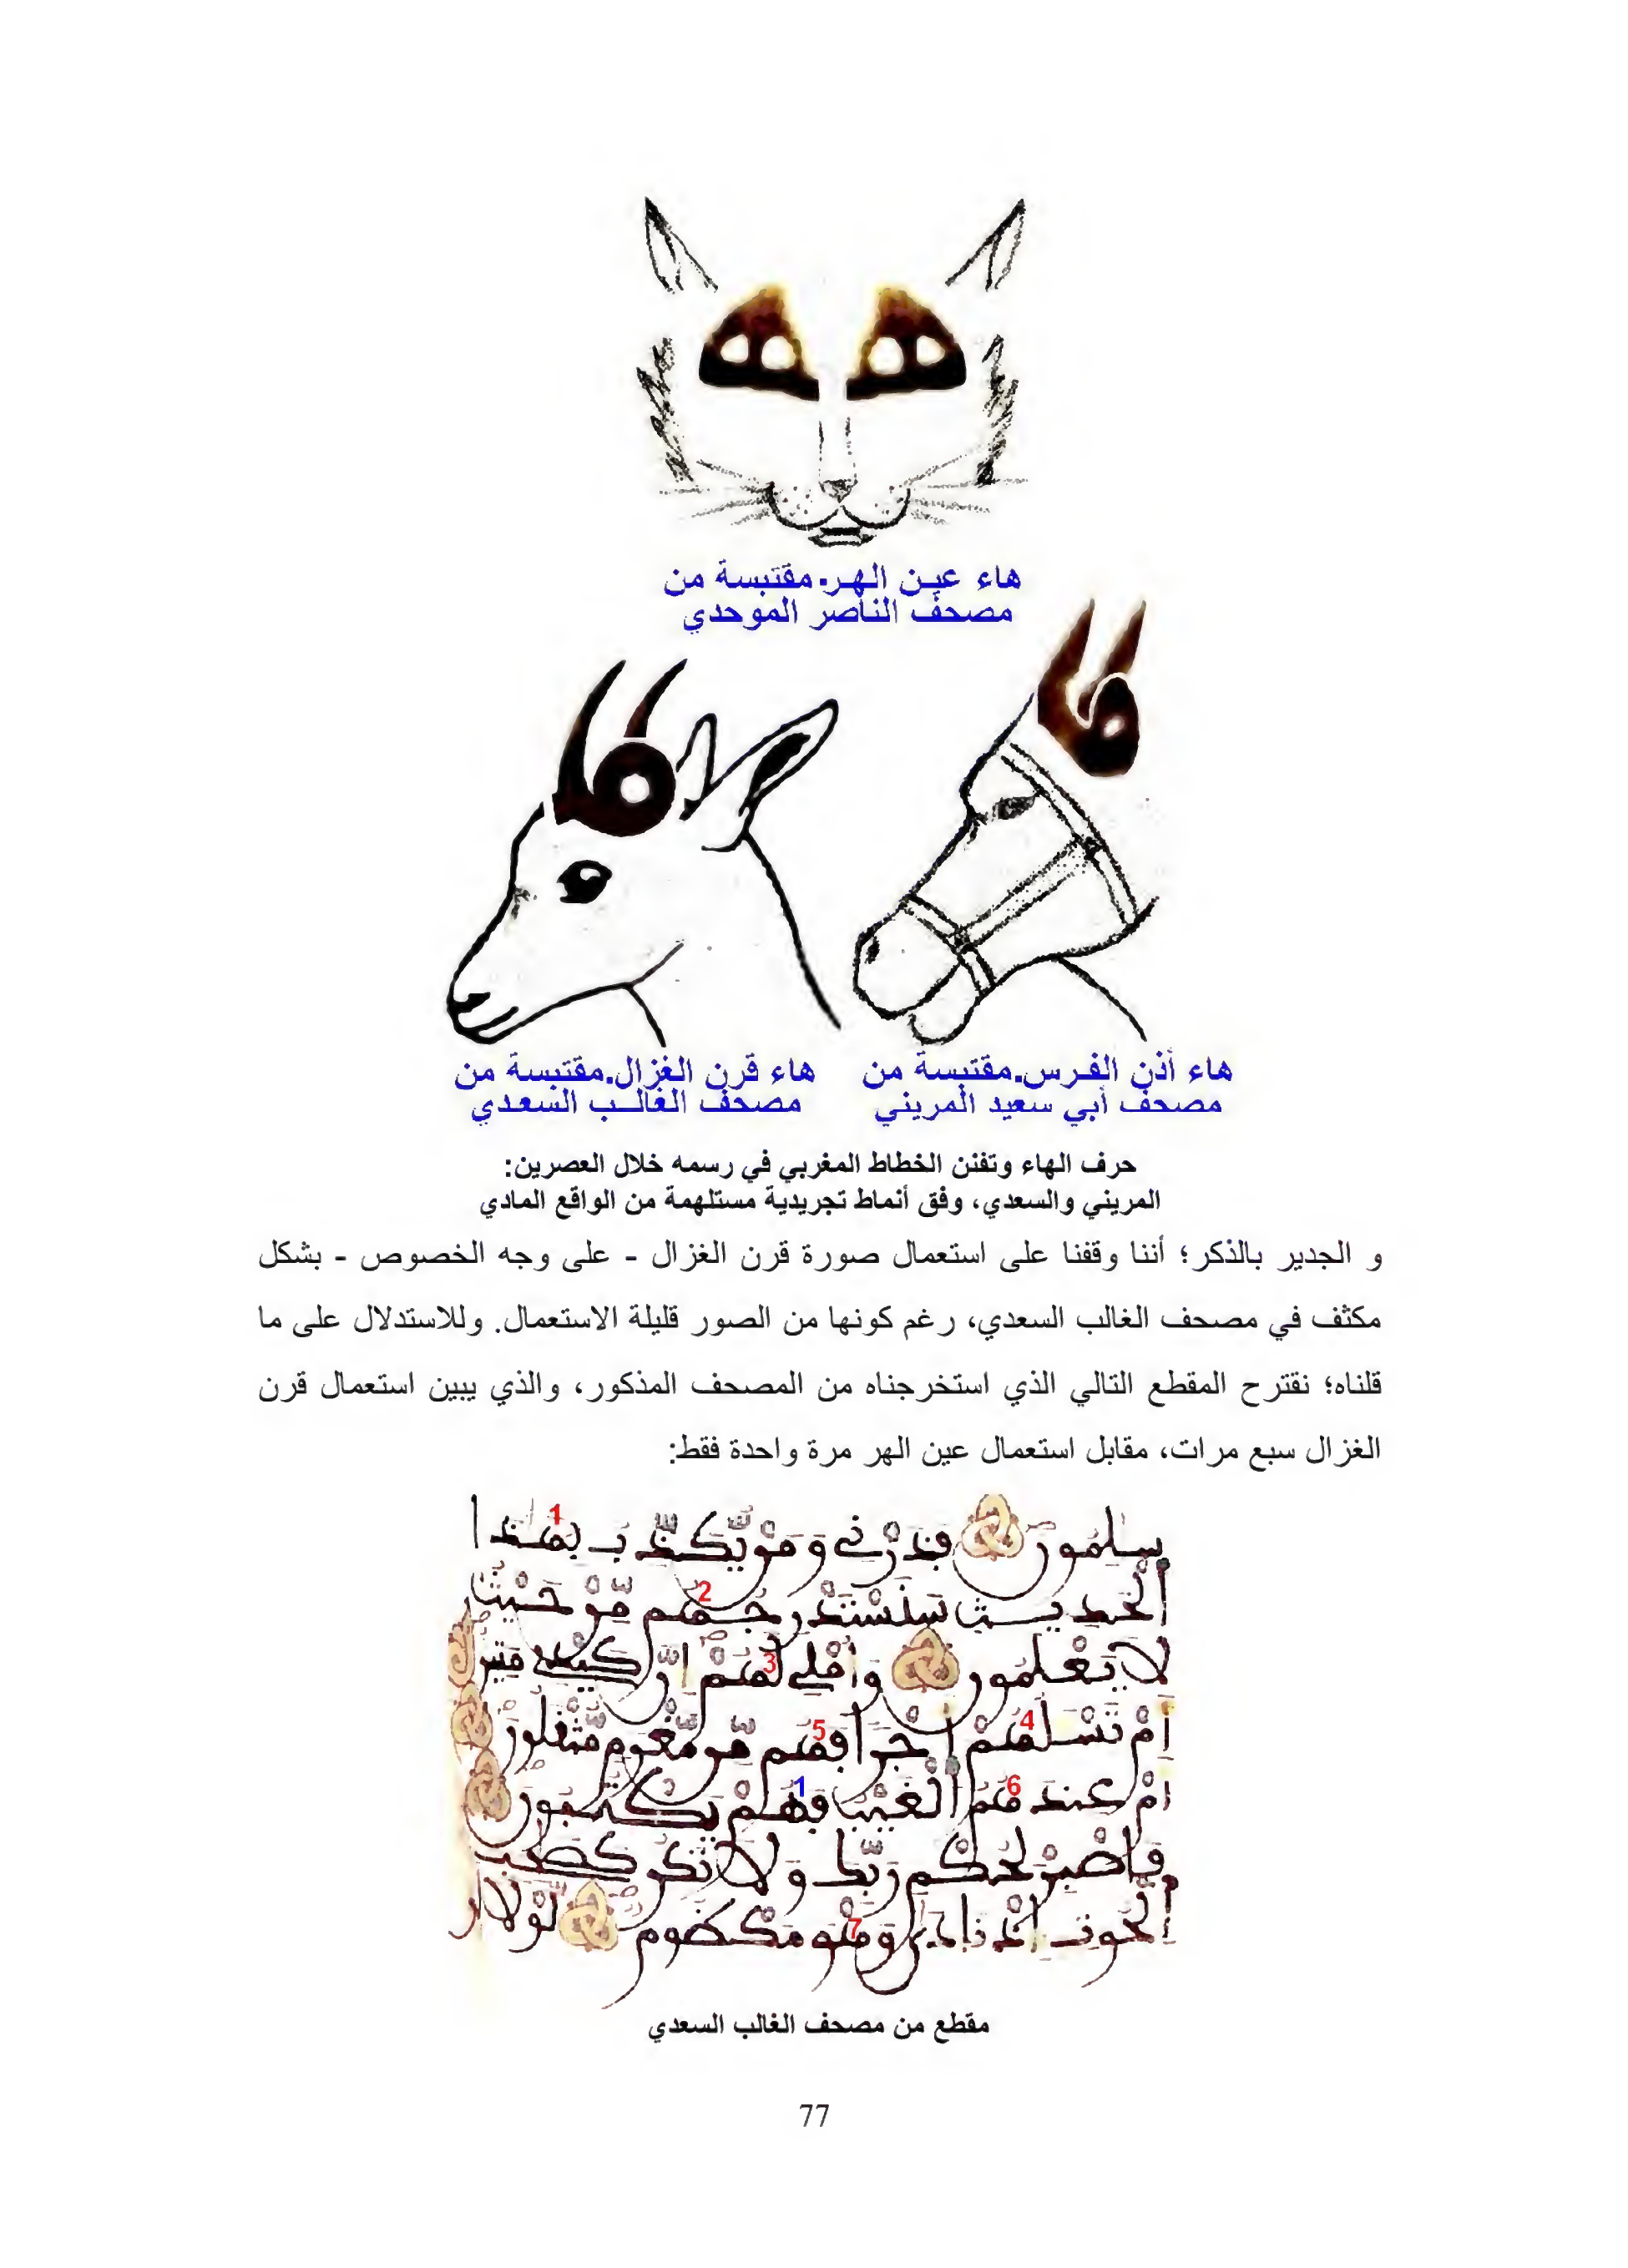 هاء عين الهر.مقتبسة من
مصحف الناصر الموحدي
هاء أذن الفرس.مقتبسة من
مصحف أبي سعيد المريني
هاء قرن الغزال.مقتبسة من
مصحف الغالب السعدي
حرف الهاء وتفنن الخطاط المغربي في رسمه خلال العصرين:
المريني والسعدي، وفق أنماط تجريدية مستلهمة من الواقع المادي
و الجدير بالذكر؛ أننا وقفنا على استعمال صورة قرن الغزال - على وجه الخصوص - بشكل
مكثف في مصحف الغالب السعدي، رغم كونها من الصور قليلة الاستعمال. وللاستدلال على ما
قلناه؛ نقترح المقطع التالي الذي استخرجناه من المصحف المذكور، والذي يبين استعمال قرن
الغزال سبع مرات، مقابل استعمال عين الهر مرة واحدة فقط:
سلمون فذرني ومن يكذب بهذا 1
الحديث سنستدرجهم من حيث 2
لا يعلمون وأملي لهم إن كيدي متين 3
أم تسلهم أجرا فهم من مغرم مثقلون 4 5
أم عندهم الغيب فهم يكتبون 6 1
فاصبر لحكم ربك ولا تكن كصحب
الحوت إذ نادى وهو مكظوم لولا أن 7
مقطع من مصحف الغالب السعدي
77